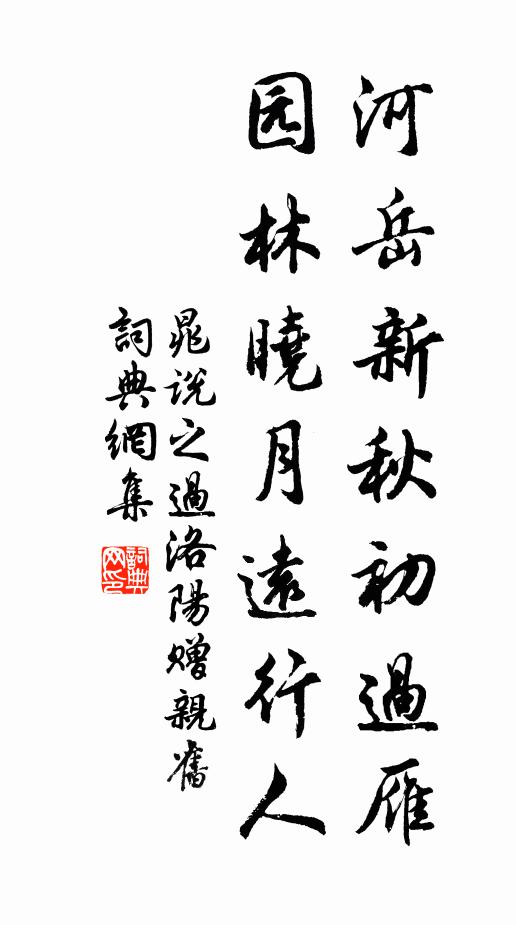 河岳新秋初過雁
园林曉月遠行人
晁说之過洛陽贈親舊
詞典網集
詞典网印